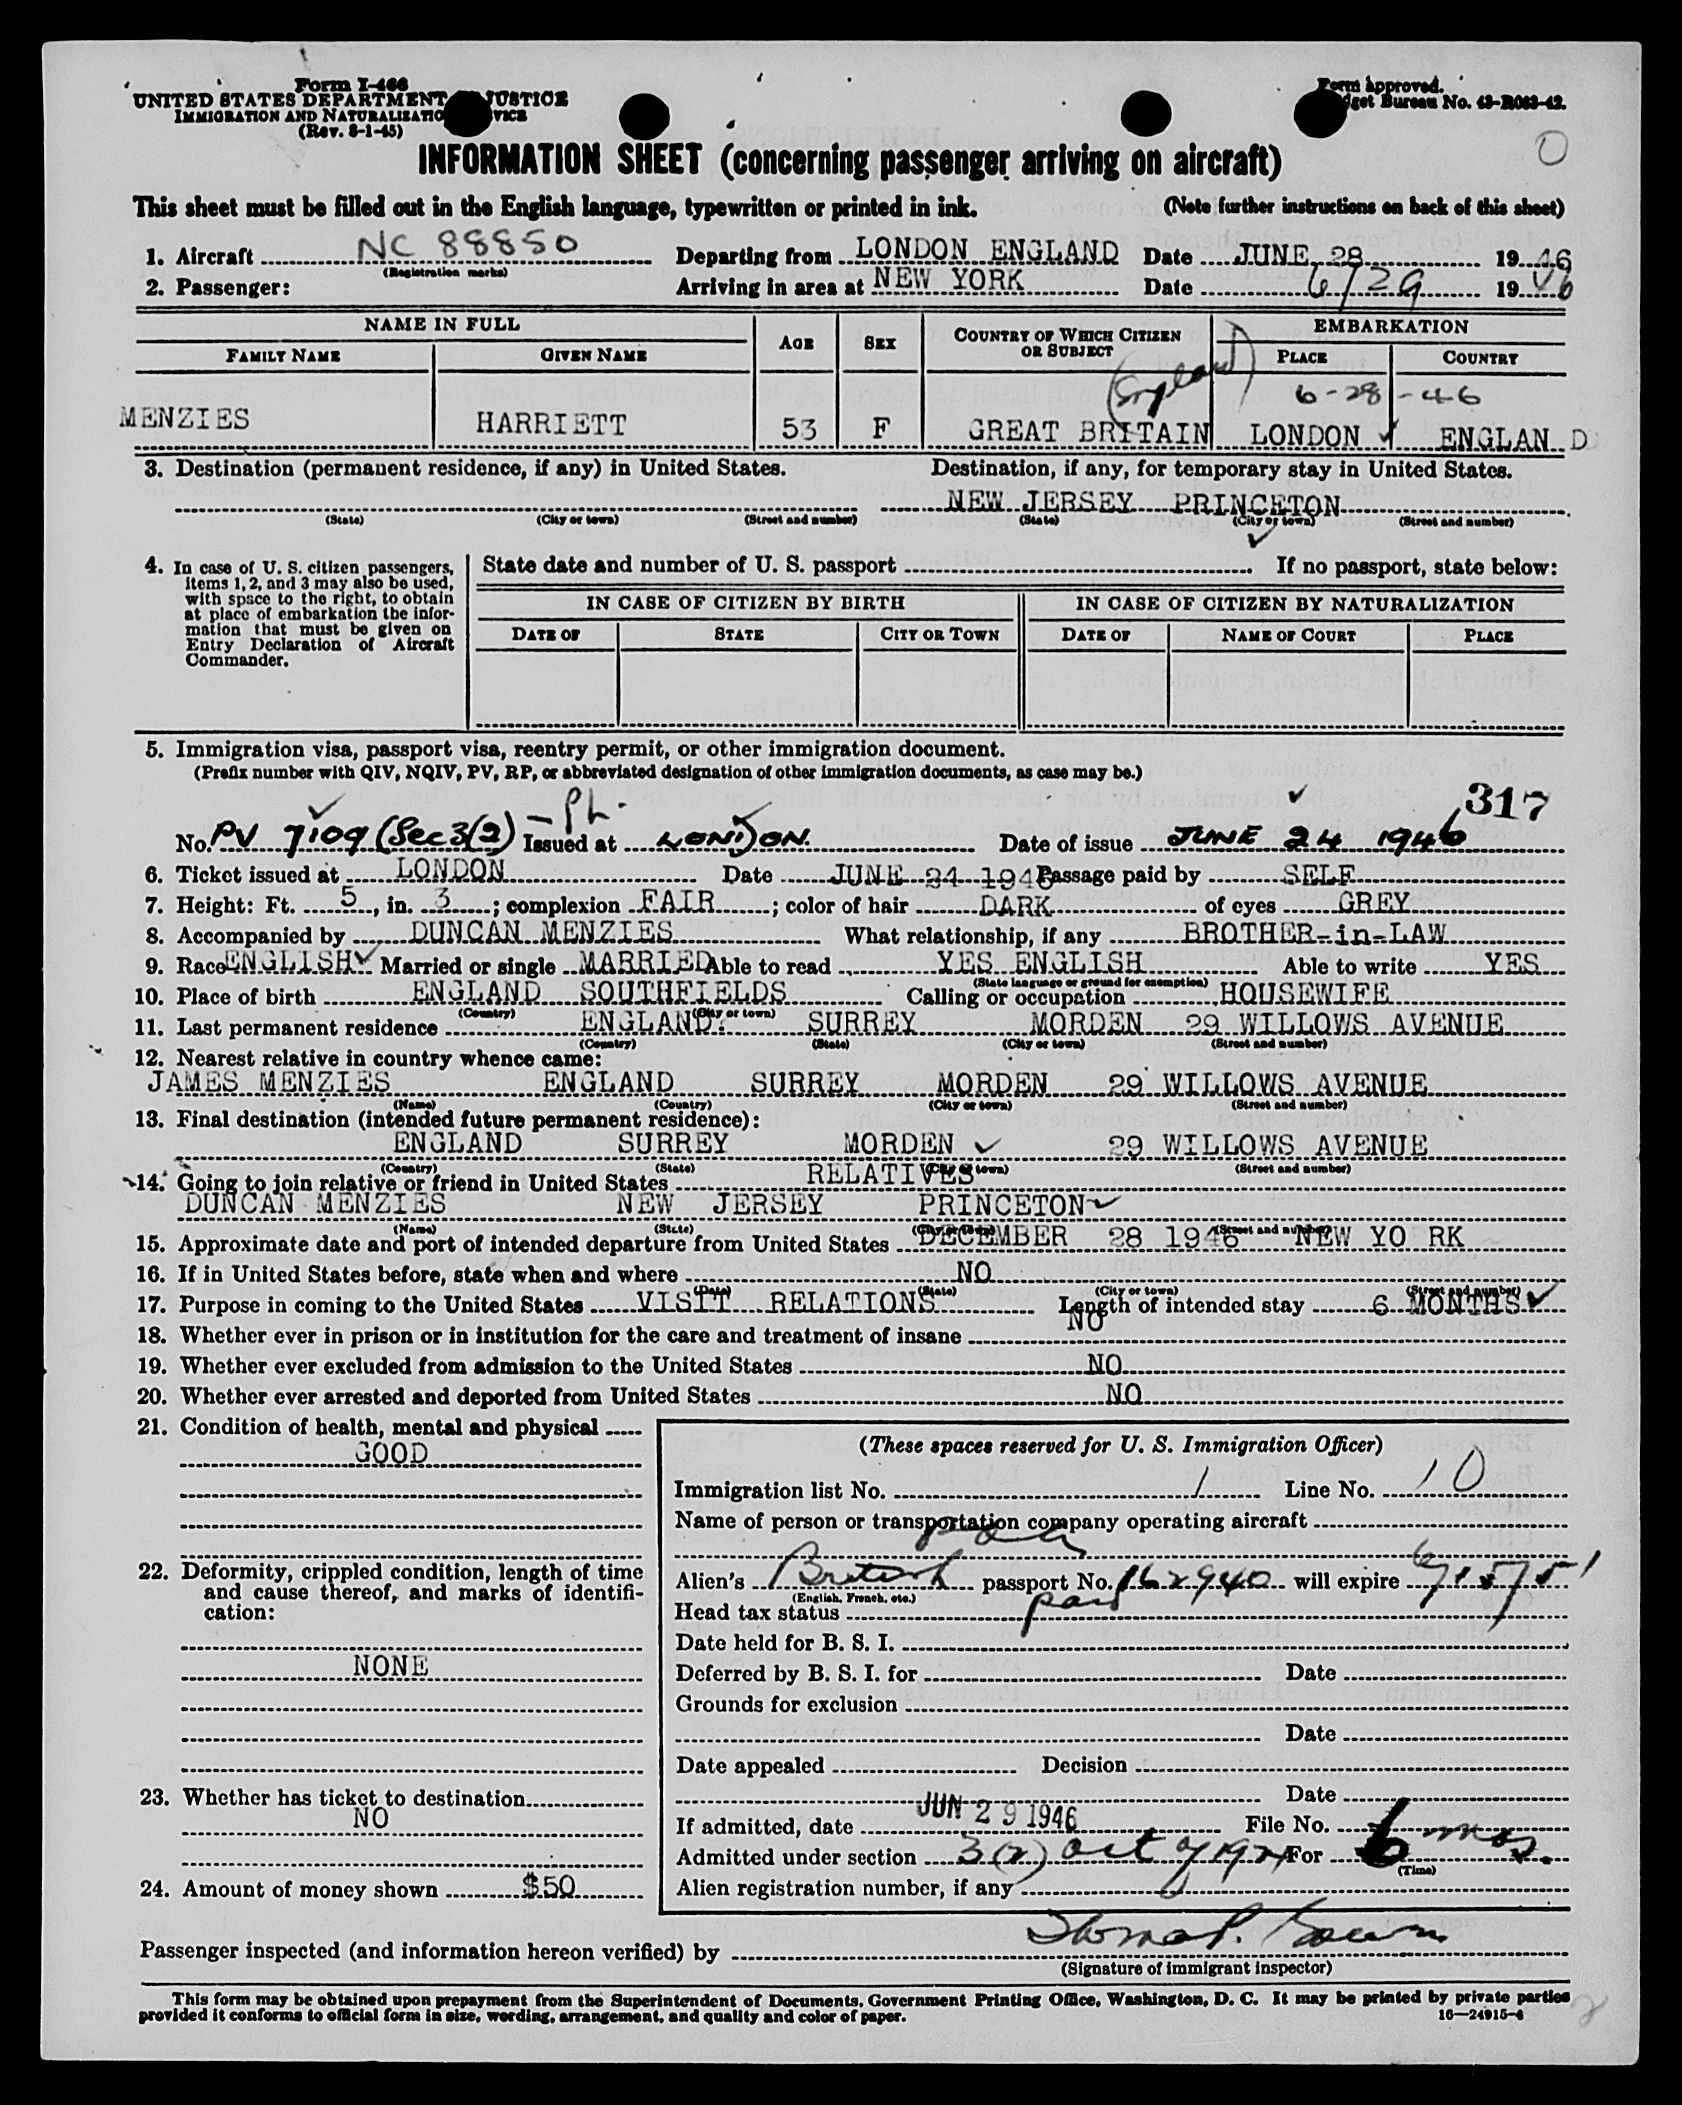 Form I-466
UNITED STATES DEPARTMENT JUSTICE
IMMIGRATION AND NATURALIZATIO VICE
(Rev. 8-1-45)
Form approved.
dget Bureau No. 43-R063-42.
0
INFORMATION SHEET (concerning passenger arriving on aircraft)
This sheet must be filled out in the English language, typewritten or printed in ink. (Note further instructions on back of this sheet)
1. Aircraft NC 88850 Departing from LONDON ENGLAND Date JUNE 28 19 46
(Registration marks)
2. Passenger: Arriving in area at NEW YORK Date 6/29 19 46
NAME IN FULL AGE SEX COUNTRY OF WHICH CITIZEN OR SUBJECT EMBARKATION
FAMILY NAME GIVEN NAME PLACE COUNTRY
(England) 6-28-46
MENZIES HARRIETT 53 F GREAT BRITAIN LONDON ENGLAN D
3. Destination (permanent residence, if any) in United States. Destination, if any, for temporary stay in United States.
NEW JERSEY PRINCETON
(State) (City or town) (Street and number) (State) (City or town) (Street and number)
4. In case of U. S. citizen passengers, items 1, 2, and 3 may also be used, with space to the right, to obtain at place of embarkation the information that must be given on Entry Declaration of Aircraft Commander.
State date and number of U. S. passport If no passport, state below:
IN CASE OF CITIZEN BY BIRTH IN CASE OF CITIZEN BY NATURALIZATION
DATE OF STATE CITY OR TOWN DATE OF NAME OF COURT PLACE
5. Immigration visa, passport visa, reentry permit, or other immigration document.
(Prefix number with QIV, NQIV, PV, RP, or abbreviated designation of other immigration documents, as case may be.)
317
No. PV 7109 (Sec 3(2) Issued at LONDON. Date of issue JUNE 24 1946
6. Ticket issued at LONDON Date JUNE 24 1946 Passage paid by SELF
7. Height: Ft. 5, in. 3; complexion FAIR; color of hair DARK of eyes GREY
8. Accompanied by DUNCAN MENZIES What relationship, if any BROTHER-in-LAW
9. Race ENGLISH Married or single MARRIED Able to read YES ENGLISH Able to write YES
(State language or ground for exemption)
10. Place of birth ENGLAND SOUTHFIELDS Calling or occupation HOUSEWIFE
(Country) (City or town)
11. Last permanent residence ENGLAND. SURREY MORDEN 29 WILLOWS AVENUE
(Country) (State) (City or town) (Street and number)
12. Nearest relative in country whence came:
JAMES MENZIES ENGLAND SURREY MORDEN 29 WILLOWS AVENUE
(Name) (Country) (City or town) (Street and number)
13. Final destination (intended future permanent residence):
ENGLAND SURREY MORDEN 29 WILLOWS AVENUE
(Country) (State) (City or town) (Street and number)
14. Going to join relative or friend in United States RELATIVES
DUNCAN MENZIES NEW JERSEY PRINCETON
(Name) (State) (City or town) (Street and number)
15. Approximate date and port of intended departure from United States DECEMBER 28 1946 NEW YO RK
16. If in United States before, state when and where NO
(Date) (State) (City or town) (Street and number)
17. Purpose in coming to the United States VISIT RELATIONS Length of intended stay 6 MONTHS
18. Whether ever in prison or in institution for the care and treatment of insane NO
19. Whether ever excluded from admission to the United States NO
20. Whether ever arrested and deported from United States NO
21. Condition of health, mental and physical
GOOD
22. Deformity, crippled condition, length of time and cause thereof, and marks of identification:
NONE
23. Whether has ticket to destination
NO
24. Amount of money shown $50
(These spaces reserved for U. S. Immigration Officer)
Immigration list No. 1 Line No. 10
Name of person or transportation company operating aircraft
Alien's British passport No. 162940 will expire
(English, French, etc.)
Head tax status paid
Date held for B. S. I.
Deferred by B. S. I. for Date
Grounds for exclusion
Date
Date appealed Decision
Date
If admitted, date JUN 29 1946 File No.
Admitted under section 3(2) act of 1924 For 6 mos.
(Time)
Alien registration number, if any
Passenger inspected (and information hereon verified) by
(Signature of immigrant inspector)
This form may be obtained upon prepayment from the Superintendent of Documents, Government Printing Office, Washington, D. C. It may be printed by private parties
provided it conforms to official form in size, wording, arrangement, and quality and color of paper. 16—24915-4